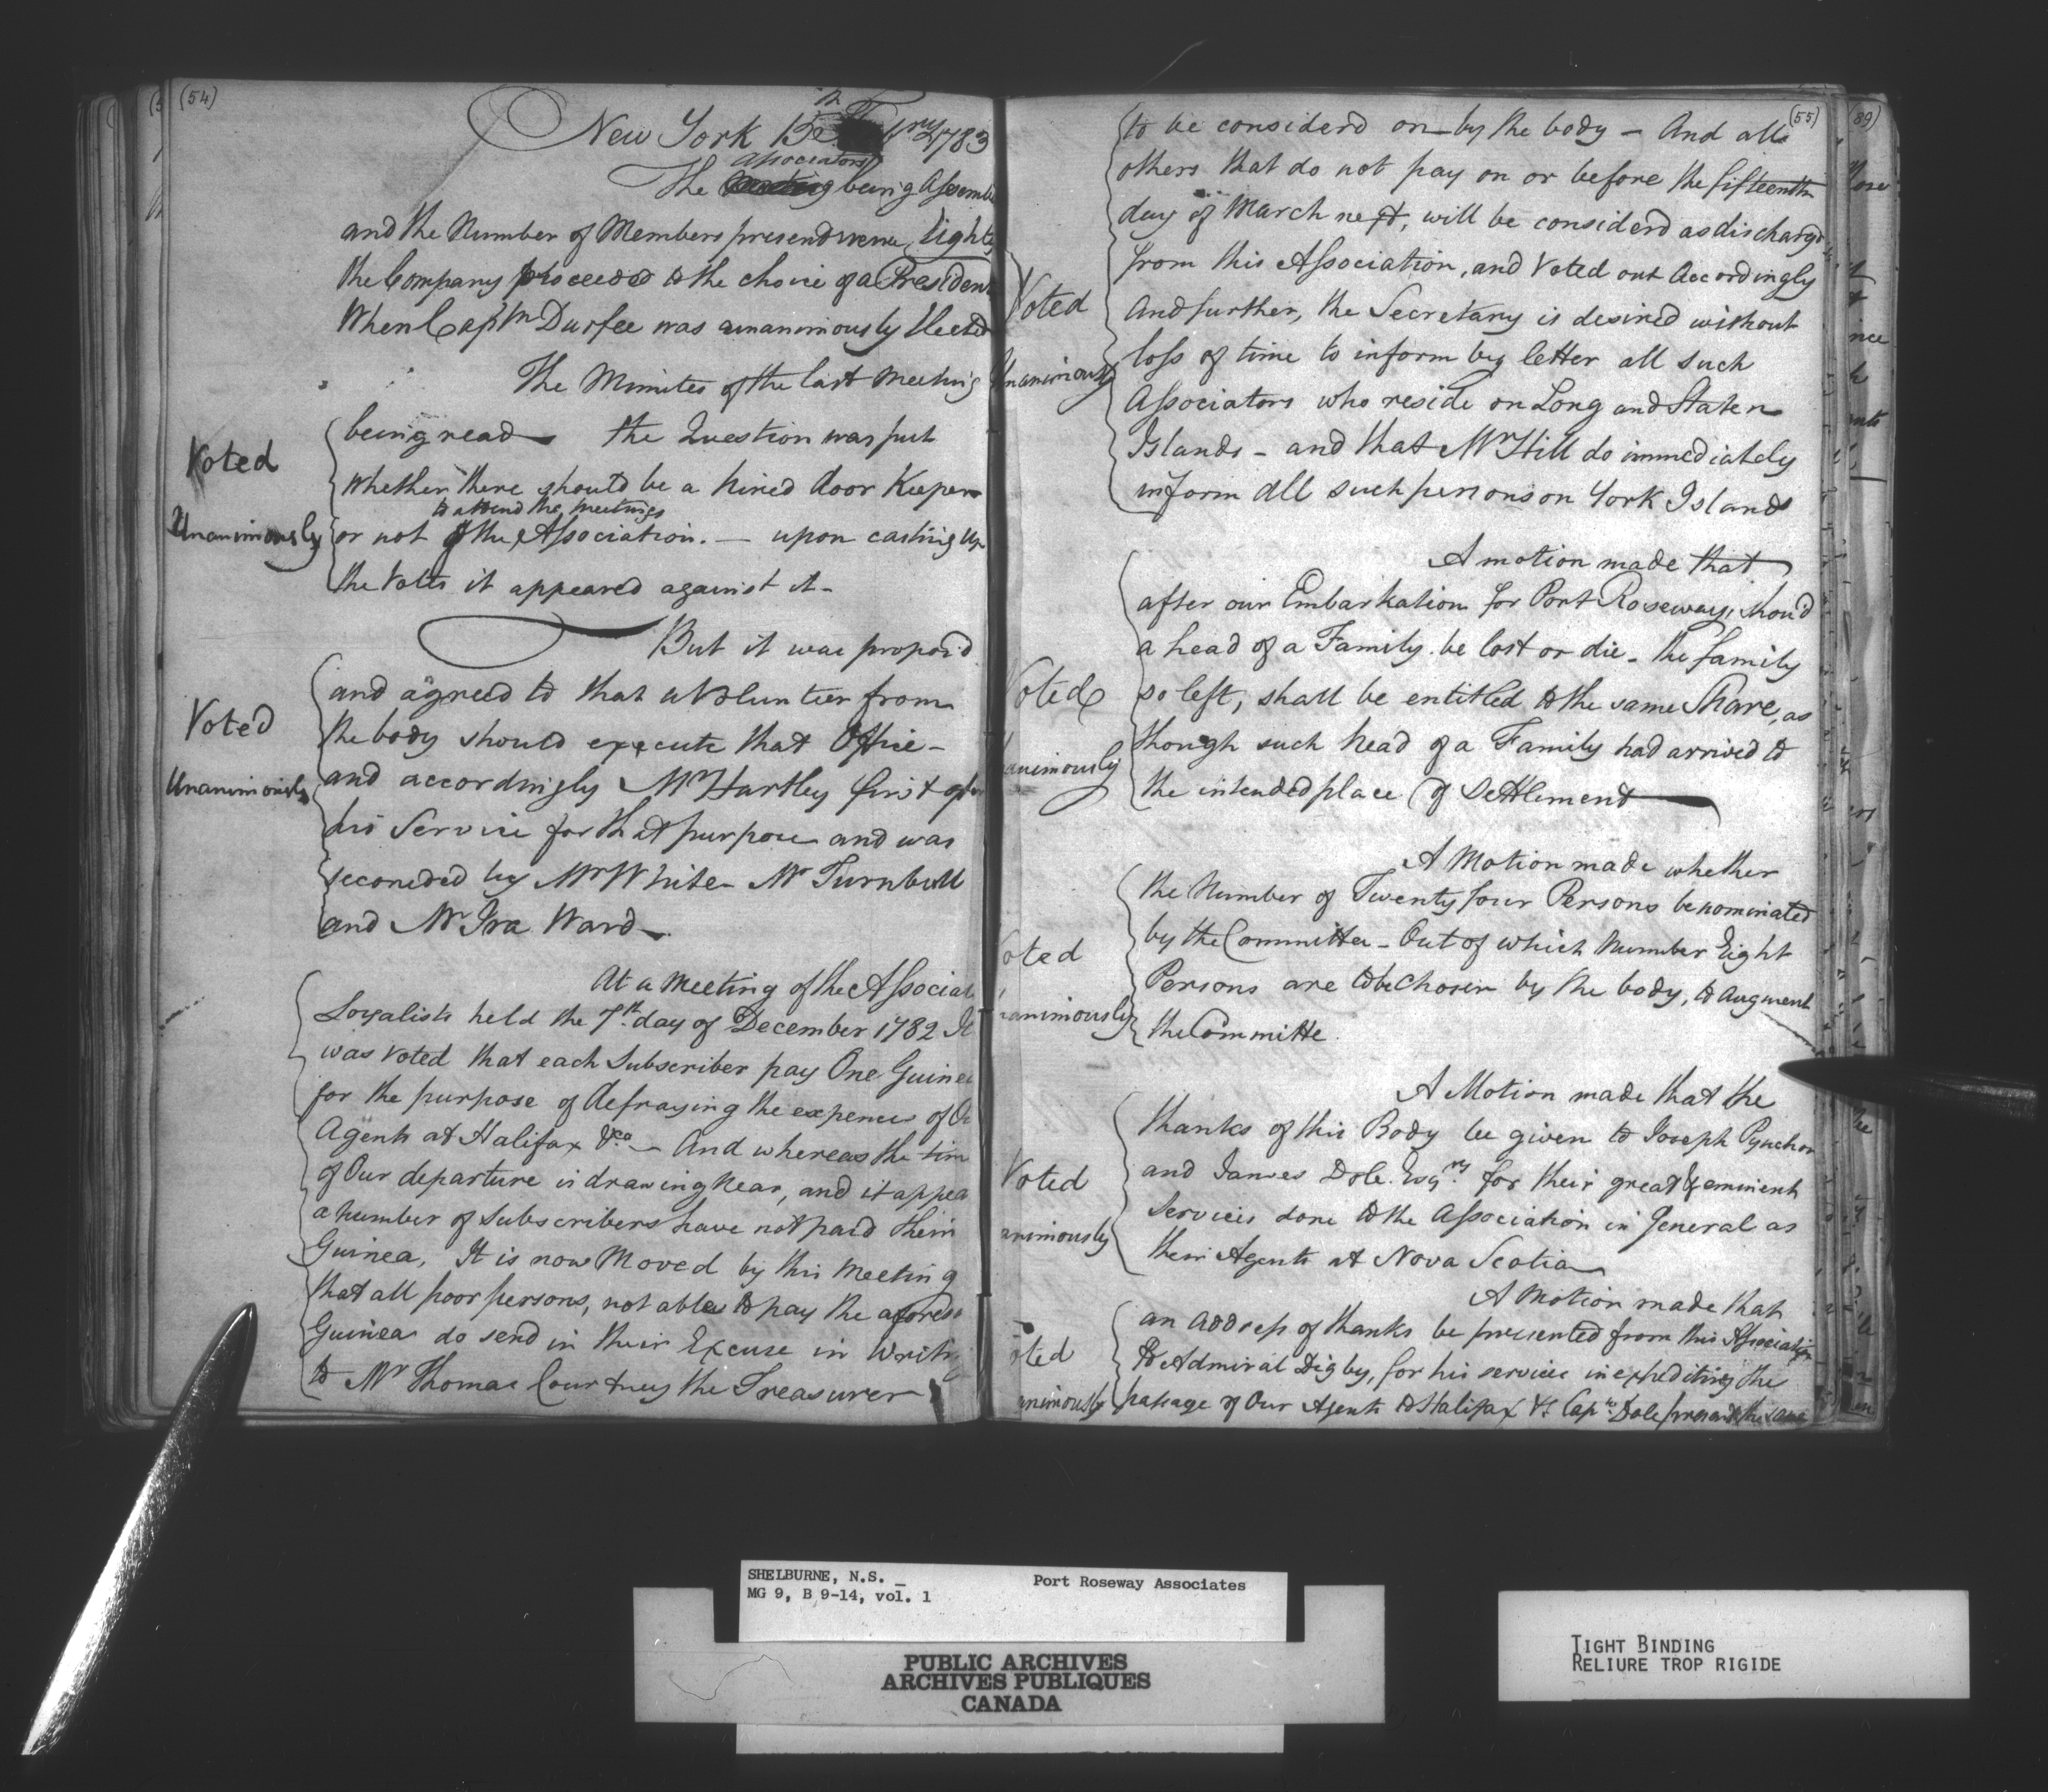 (54)
New York 15th Febry 1783
The Associators being Assemb
and the Number of Members present were Eighty
the Company proceeded to the choice of a President
When Captn Durfee was unanimously Elected
The Minites of the last Meeting
being read the Question was put
whether there should be a hired door Keeper
to attend the meetings
or not of the Association. — upon casting up
the Votes it appeared against it -
Voted
Unanimously
But it was propos'd
and agreed to that a Volunteer from
the body should execute that Office -
and accordingly Mr Hartley first
his Service for that purpose and was
seconded by Mr White - Mr Turnbull
and Mr Ira Ward.
Voted
Unanimously
At a Meeting of the Associat
Loyalists held the 7th day of December 1782 It
was Voted that each Subscriber pay One Guinea
for the purpose of defraying the expences of
Agents at Halifax &ca - And whereas the tim
of Our departure is drawing Near, and it appea
a number of Subscribers have not paid their
Guinea, It is now Moved by this Meeting
that all poor persons, not able to pay the aforesd
Guinea do send in their Excuse in Writi
to Mr Thomas Courtney the Treasurer
(55)
to be considerd on by the body - And all
others that do not pay on or before the fifteenth
day of March next, will be considerd as discharg'd
from this Association, and Voted out Accordingly
And further, the Secretary is desired without
loss of time to inform by letter all such
Associators who reside on Long and Staten
Islands - and that Mr Hill do immediately
inform all such persons on York Island
Voted
Unanimously
A motion made that
after our Embarkation for Port Roseway, shou'd
a head of a Family be lost or die - the family
so left, shall be entitled to the same Share, as
though such head of a Family had arrived to
the intended place of Settlement
Voted
nanimously
A Motion made whether
the Number of Twenty four Persons be nominated
by the Committee - Out of which Number Eight
Persons are to be Chosen by the body, to augment
the Committe
oted
nanimously
A Motion made that the
thanks of this Body be given to Joseph Pynchon
and James Dole Esqrs for their great & eminent
Services done to the Association in General as
their Agents at Nova Scotia
Voted
animously
A Motion made that
an address of thanks be presented from this Association
to Admiral Digby, for his services in expediting the
passage of Our Agents to Halifax & Capn Dole present the same
oted
nimously
(89)
SHELBURNE, N.S. _
MG 9, B 9-14, vol. 1
Port Roseway Associates
PUBLIC ARCHIVES
ARCHIVES PUBLIQUES
CANADA
TIGHT BINDING
RELIURE TROP RIGIDE